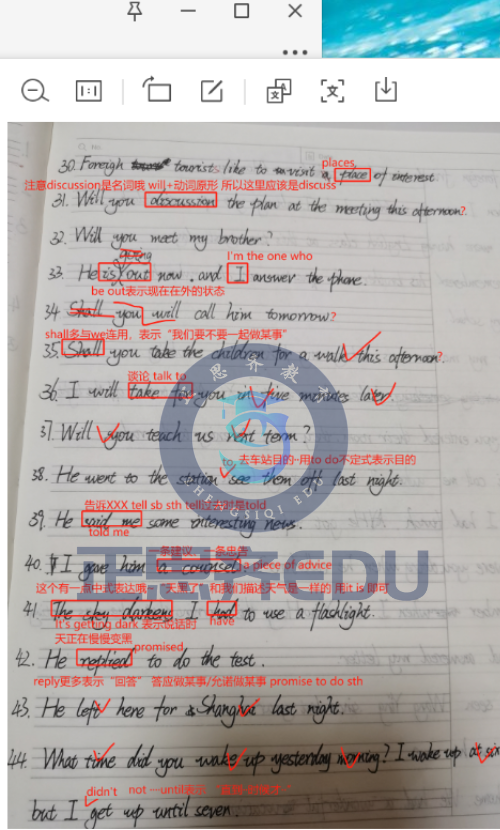 1:1
places,
30. Foreign tourists like to visit a place of interest.
注意discussion是名词哦 will+动词原形 所以这里应该是discuss
31. Will you discussion the plan at the meeting this afternoon?
32. Will you meet my brother?
going
I'm the one who
33 He is out now. and I answer the phone.
be out表示现在在外的状态
34 Shall you will call him tomorrow?
shall多与we连用，表示“我们要不要一起做某事”
35. Shall you take the children for a walk this afternoon?
谈论 talk to
36. I will take for you in five minutes later.
37. Will you teach us next term?
to 去车站目的-用to do不定式表示目的
38. He went to the station see them off last night.
告诉XXX tell sb sth tell过去时是told
39. He said me some interesting news.
told me
一条建议 一条忠告
40. I gave him a counsel a piece of advice
开思齐EDU
这个有一点中式表达哦 天黑了 和我们描述天气是一样的 用it is 即可
41. The sky darkens I had to use a flashlight.
It's getting dark 表示说话时 have
天正在慢慢变黑
promised
42. He replied to do the test.
reply更多表示“回答” 答应做某事/允诺做某事 promise to do sth
43. He left here for Shanghai last night.
44. What time did you wake up yesterday morning? I wake up at six
didn't not ···until表示
but I get up until seven.